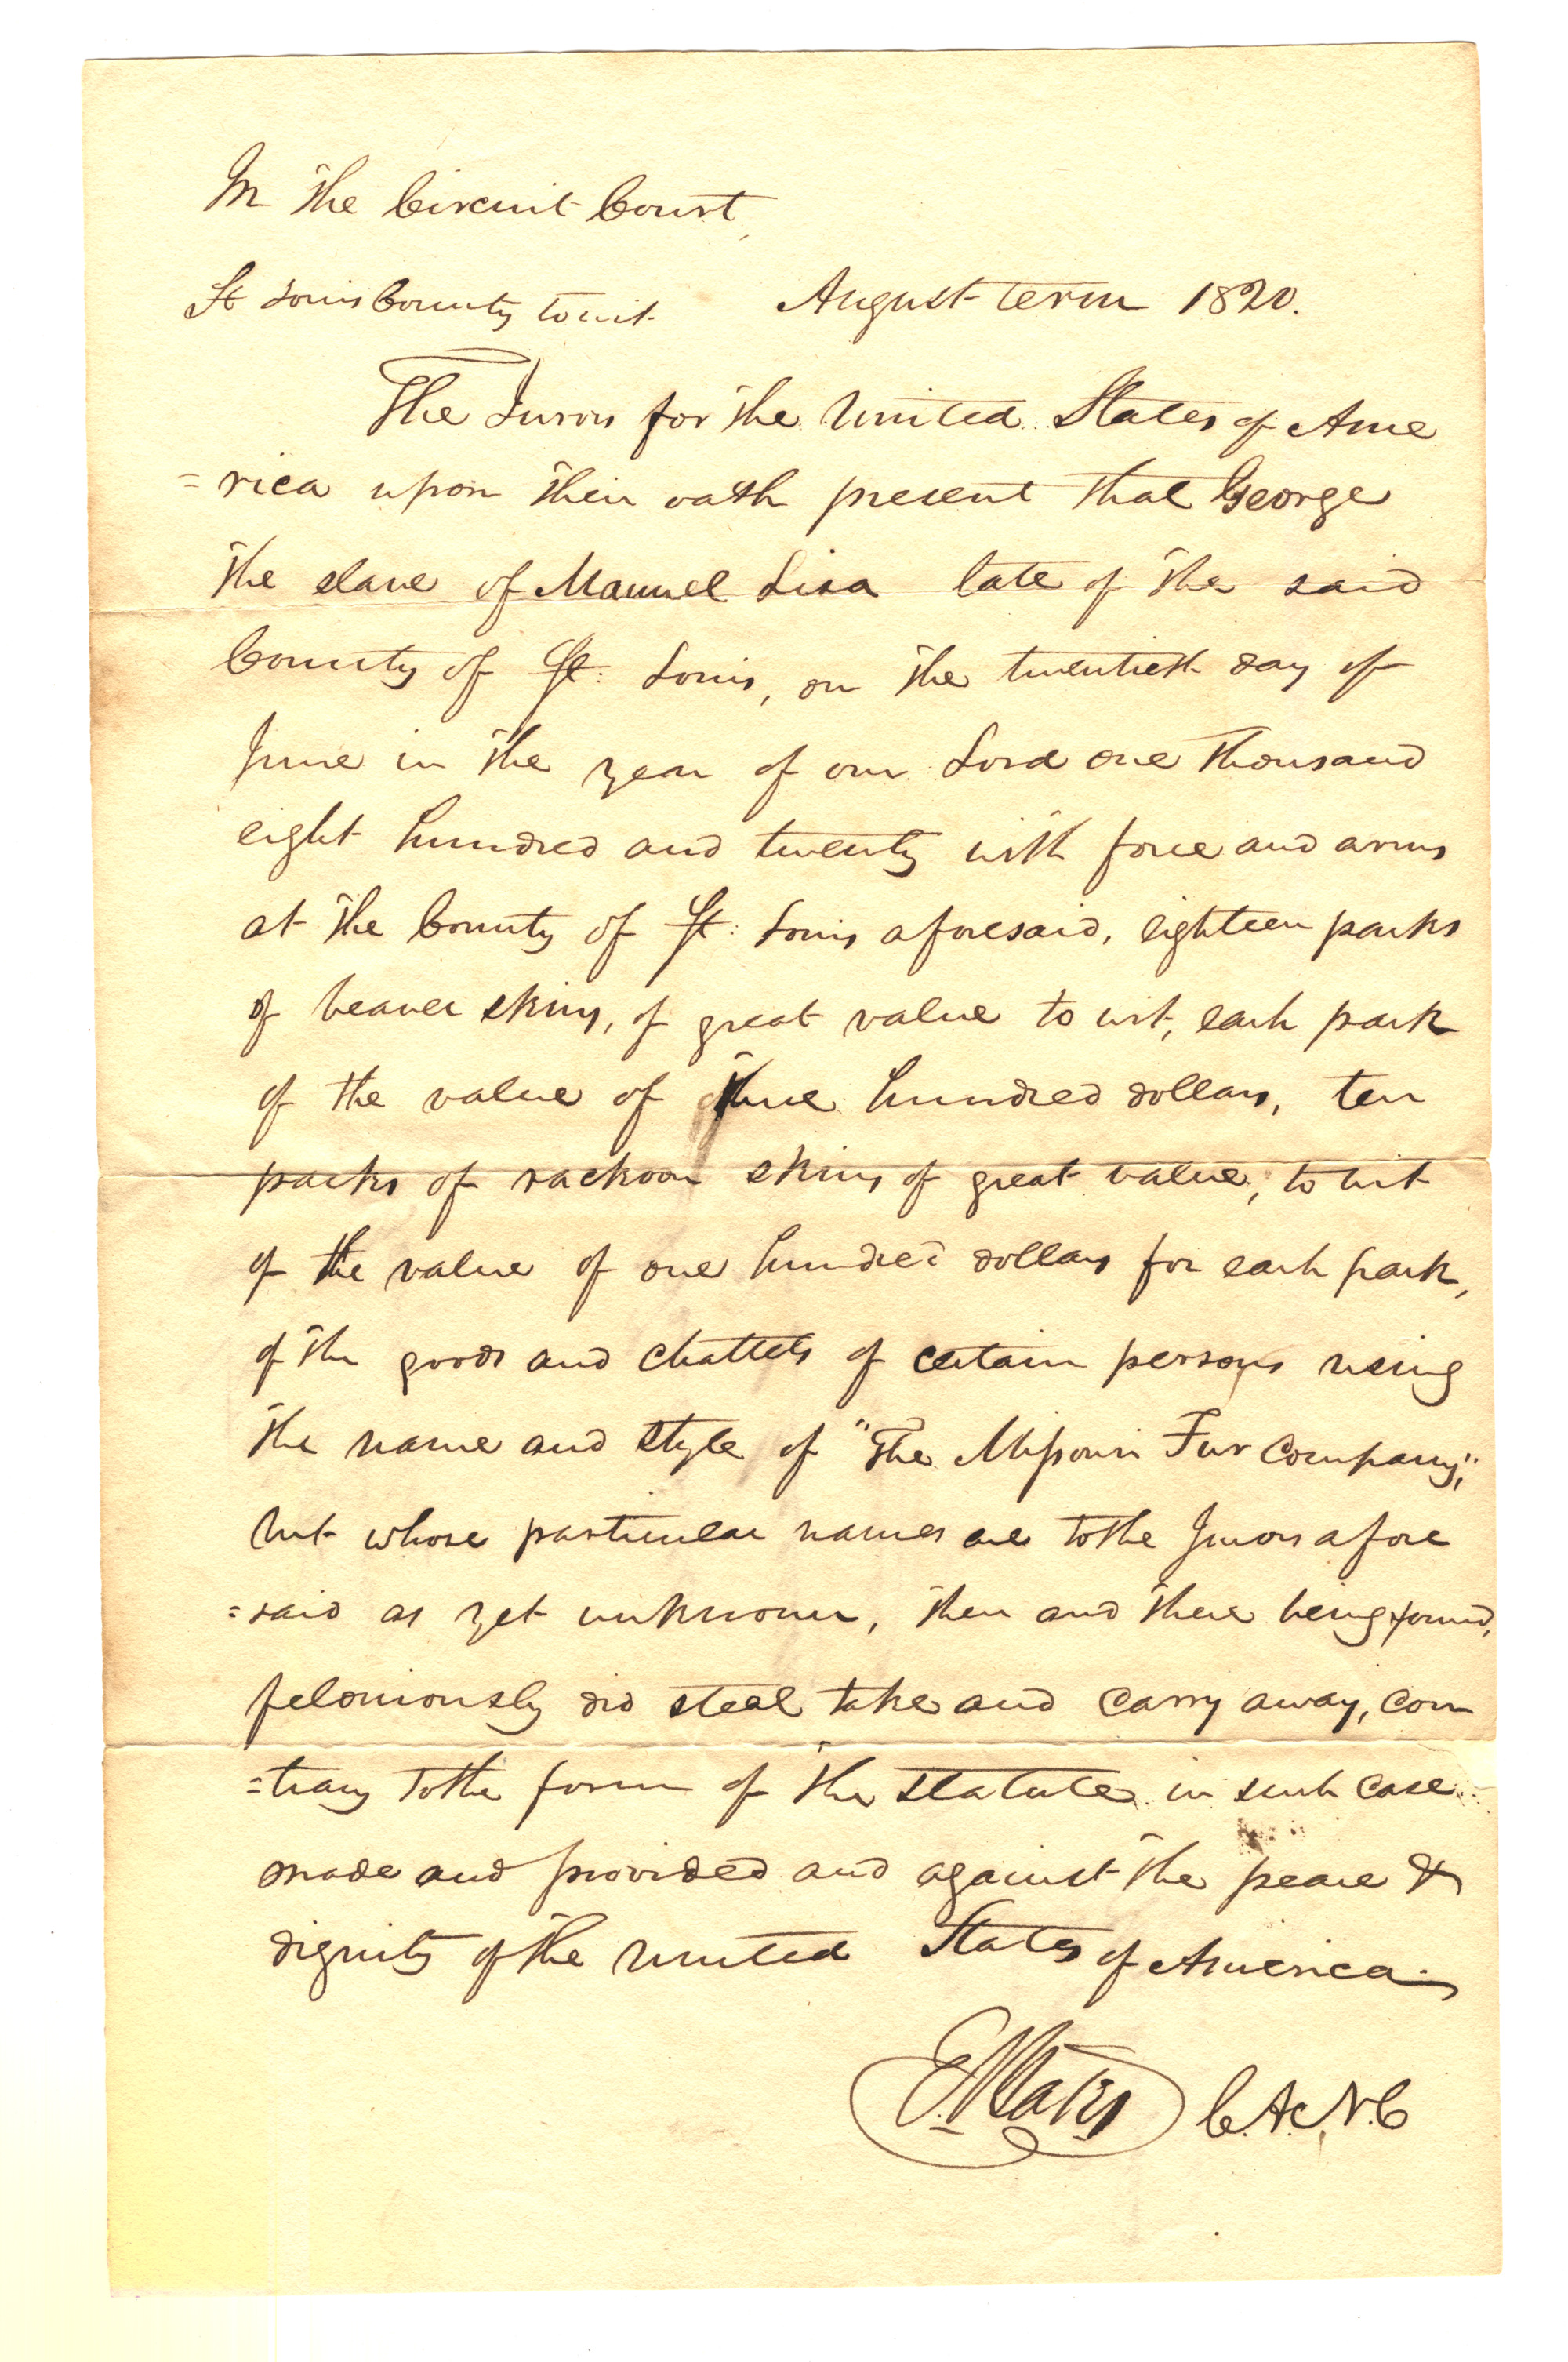 In the Circuit Court,
St Louis County towit August term 1820.
The Jurors for the United States of Ame
=rica upon their oath present that George
the slave of Manuel Lisa late of the said
County of St: Louis, on the twentieth day of
June in the year of our Lord one thousand
eight hundred and twenty with force and arms
at the County of St: Louis aforesaid, eighteen packs
of beaver skins, of great value to wit, each pack
of the value of three hundred dollars, ten
packs of rackoon skins of great value, to wit
of the value of one hundred dollars for each pack,
of the goods and chattels of certain persons using
the name and style of "The Missouri Fur Company",
but whose particular names are to the Jurors afore
=said as yet unknown, then and there being found,
feloniously did steal take and carry away, con
=trary to the form of the statute in such case
made and provided and against the peace &
dignity of the United States of America.
E. Bates C.A.N.C